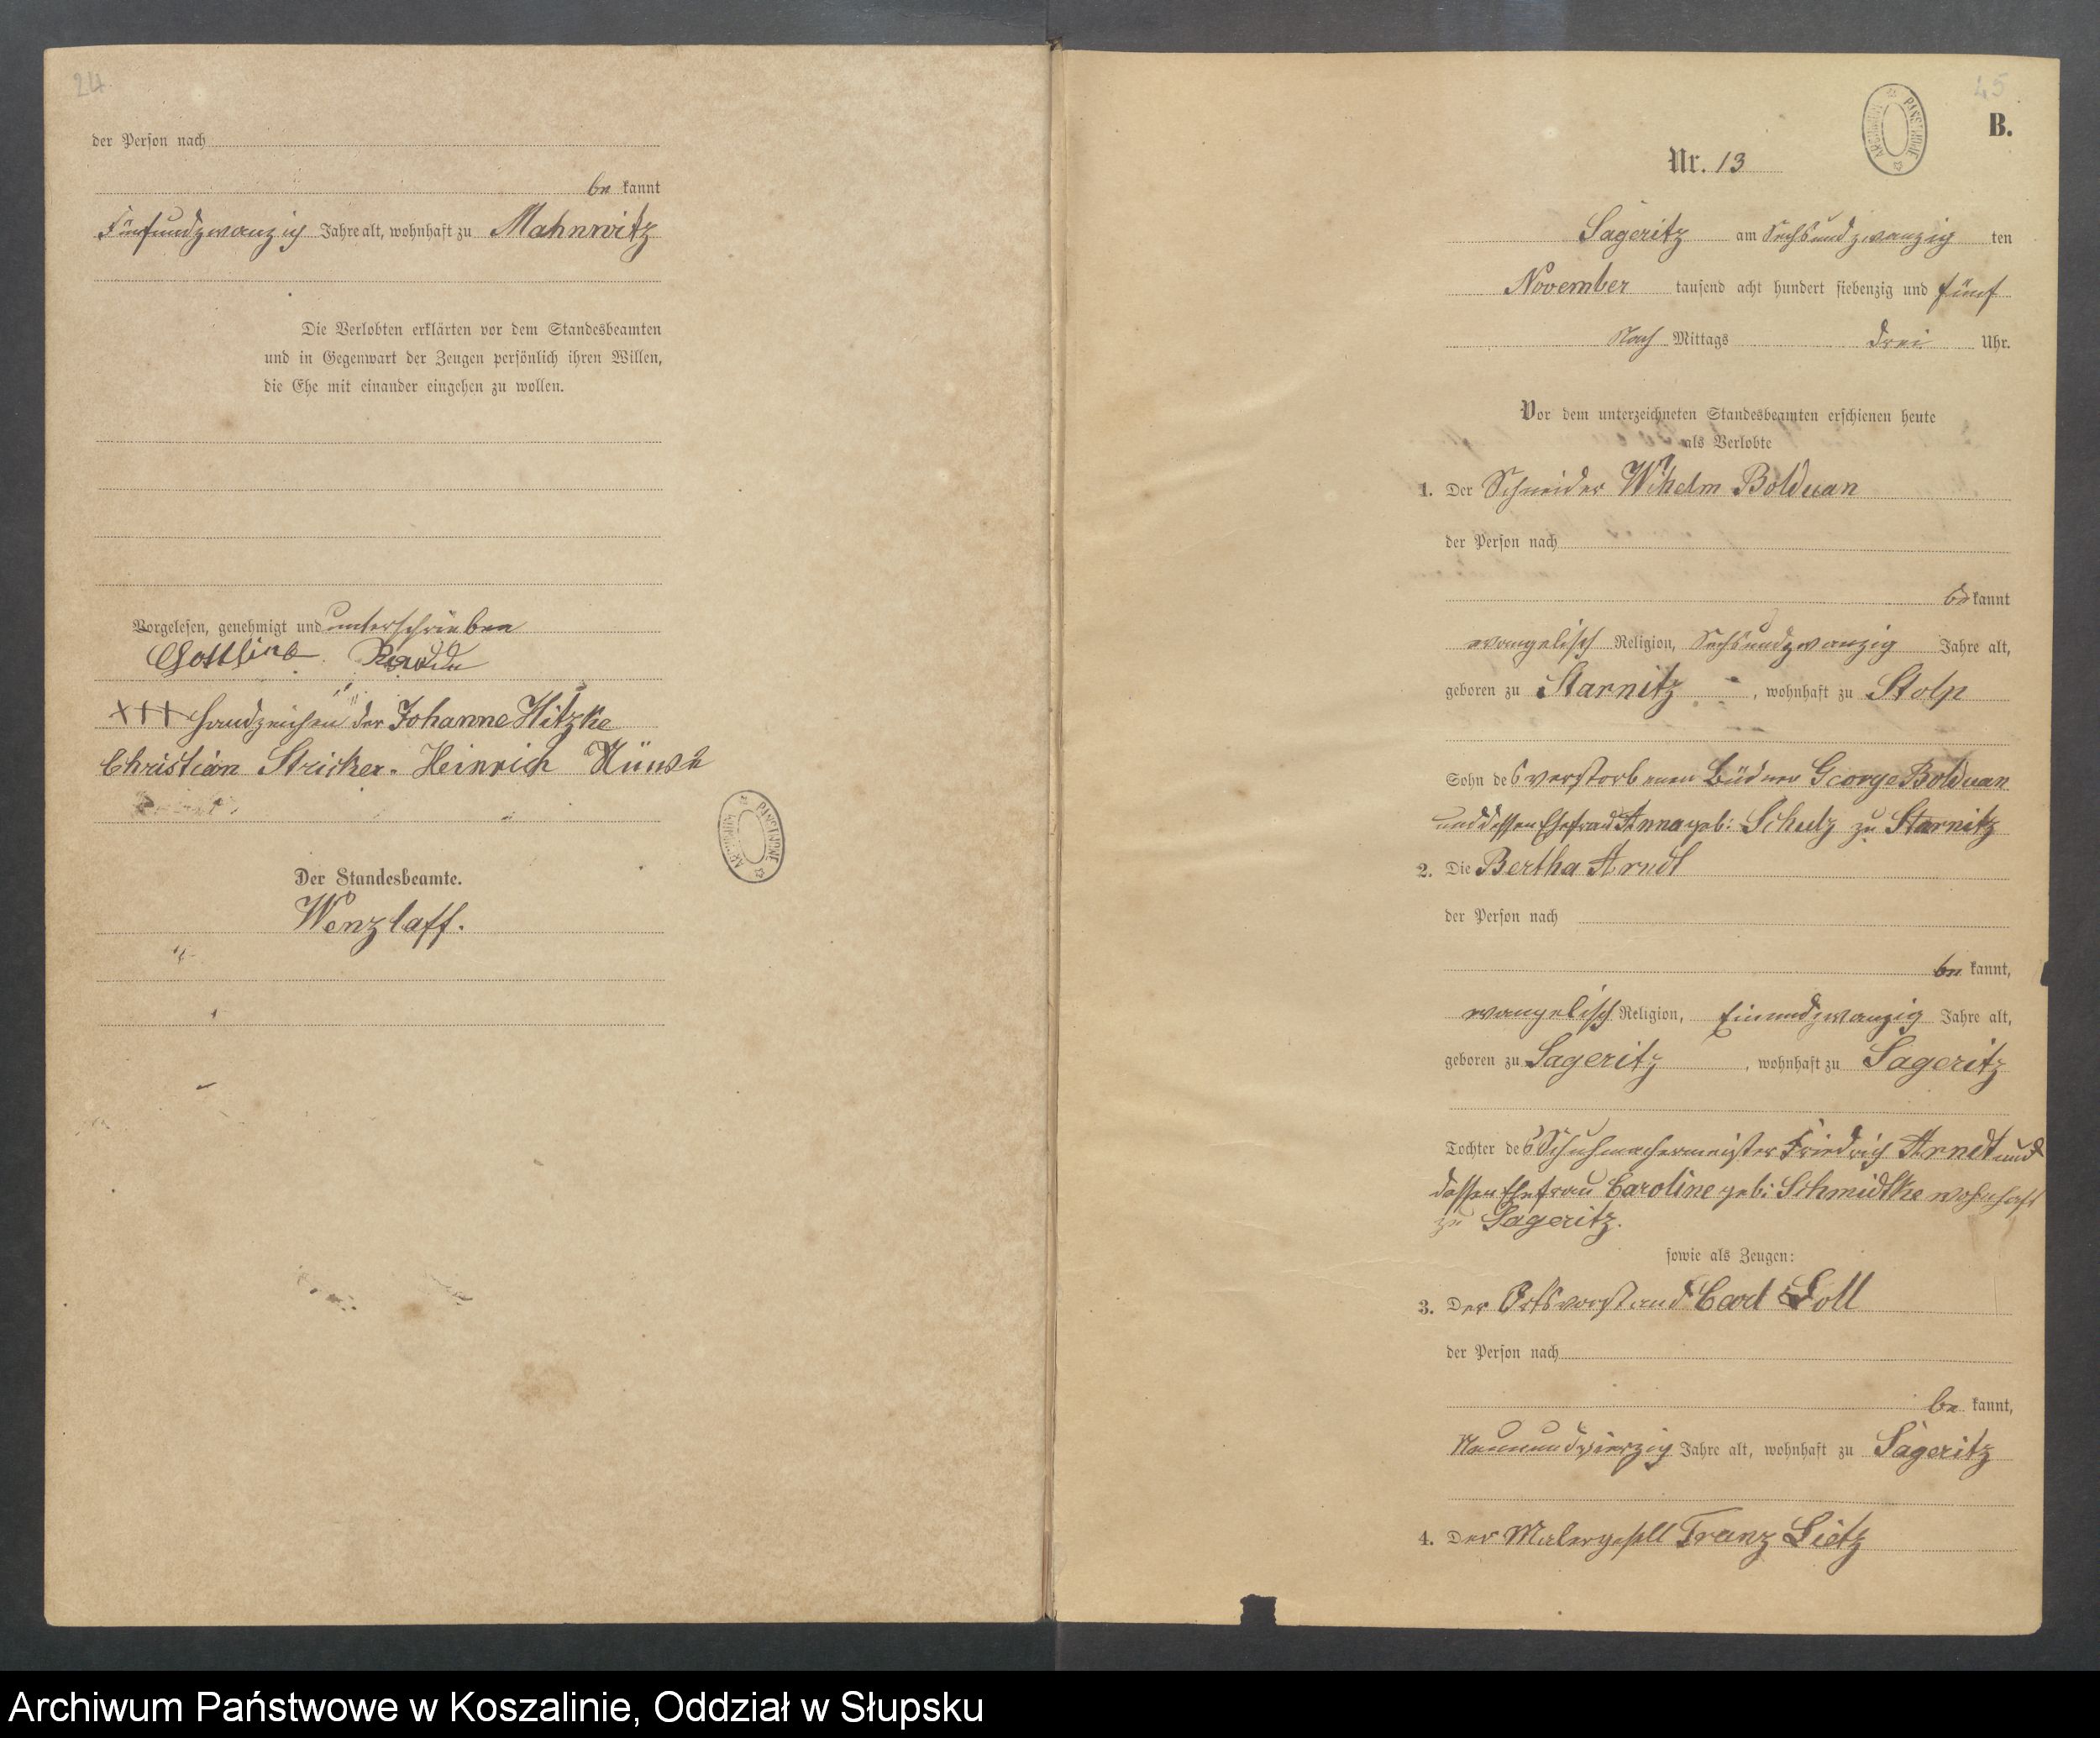 24
der Person nach
be kannt
Fünfundzwanzig Jahre alt, wohnhaft zu Mahnwitz
Die Verlobten erklärten vor dem Standesbeamten
und in Gegenwart der Zeugen persönlich ihren Willen,
die Ehe mit einander eingehen zu wollen.
Vorgelesen, genehmigt und unterschrieben
Gottlieb
XXX Handzeichen der Johanne Hitzke
Christian Stricker. Heinrich
Der Standesbeamte.
Wenzlaff.
ARCHIWUM PAŃSTWOWE
45
B.
ARCHIWUM PAŃSTWOWE
Nr. 13
Sageritz am Sechsundzwanzig ten
November tausend acht hundert siebenzig und fünf
Nach Mittags drei Uhr.
Vor dem unterzeichneten Standesbeamten erschienen heute
als Verlobte
1. Der Schneider Wilhelm Bolduan
der Person nach
be kannt
evangelisch Religion, Sechsundzwanzig Jahre alt,
geboren zu Starnitz, wohnhaft zu Stolp
Sohn des verstorbenen Büdner George Bolduan
und dessen Ehefrau Anna geb: Schulz zu Starnitz
2. Die Bertha Arndt
der Person nach
be kannt,
evangelisch Religion, Einundzwanzig Jahre alt,
geboren zu Sageritz, wohnhaft zu Sageritz
Tochter des Schuhmachermeister Friedrich Arndt und
dessen Ehefrau Caroline geb: Schmidtke wohnhaft
zu Sageritz.
sowie als Zeugen:
3. Der Ortsvorstand Carl Loll
der Person nach
be kannt,
Neunundvierzig Jahre alt, wohnhaft zu Sageritz
4. Der Malergesell Franz Lietz
Archiwum Państwowe w Koszalinie, Oddział w Słupsku